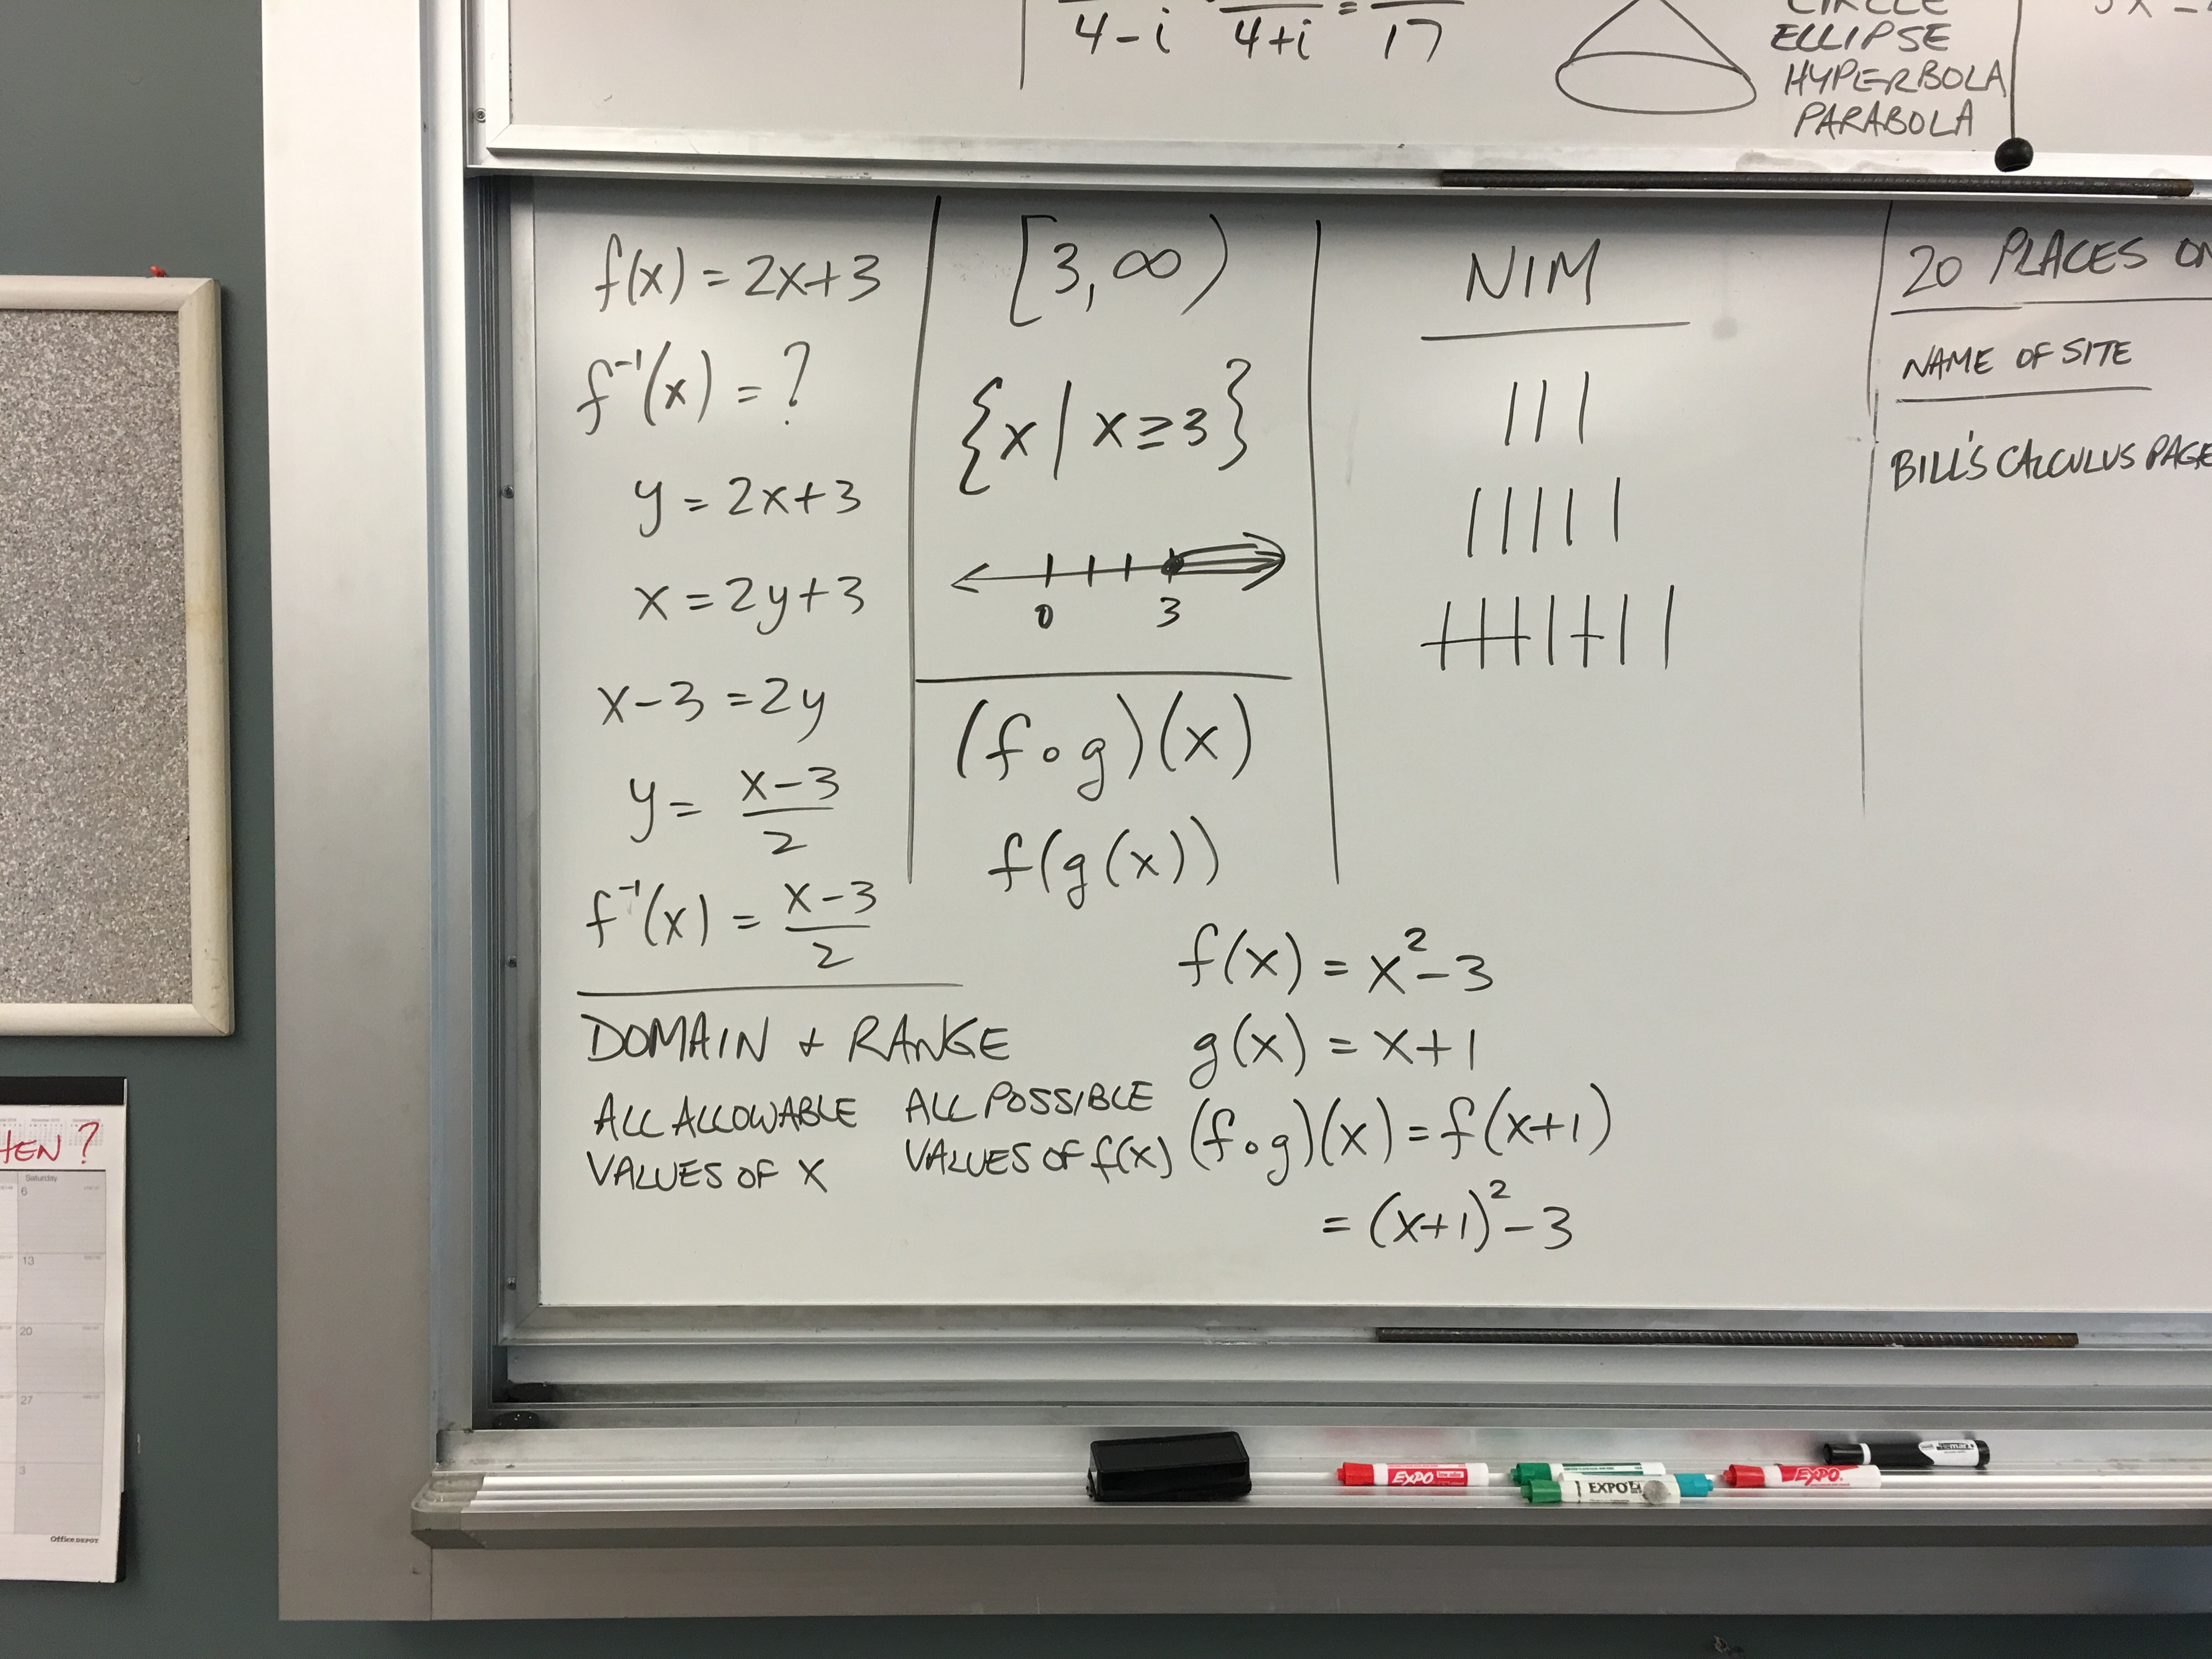 4-i 4+i = 17
ELLIPSE
HYPERBOLA
PARABOLA
f(x) = 2x+3
f⁻¹(x) = ?
y = 2x+3
x = 2y+3
x-3 = 2y
y = (x-3)/2
f⁻¹(x) = (x-3)/2
DOMAIN + RANGE
ALL ALLOWABLE
VALUES OF X
ALL POSSIBLE
VALUES OF f(x)
[3, ∞)
{x | x ≥ 3}
0 3
(f∘g)(x)
f(g(x))
f(x) = x²-3
g(x) = x+1
(f∘g)(x) = f(x+1)
= (x+1)²-3
NIM
20 PLACES ON
NAME OF SITE
BILL'S CALCULUS PAGE
HEN?
Saturday
6
13
20
27
3
Office DEPOT
EXPO
EXPO
EXPO